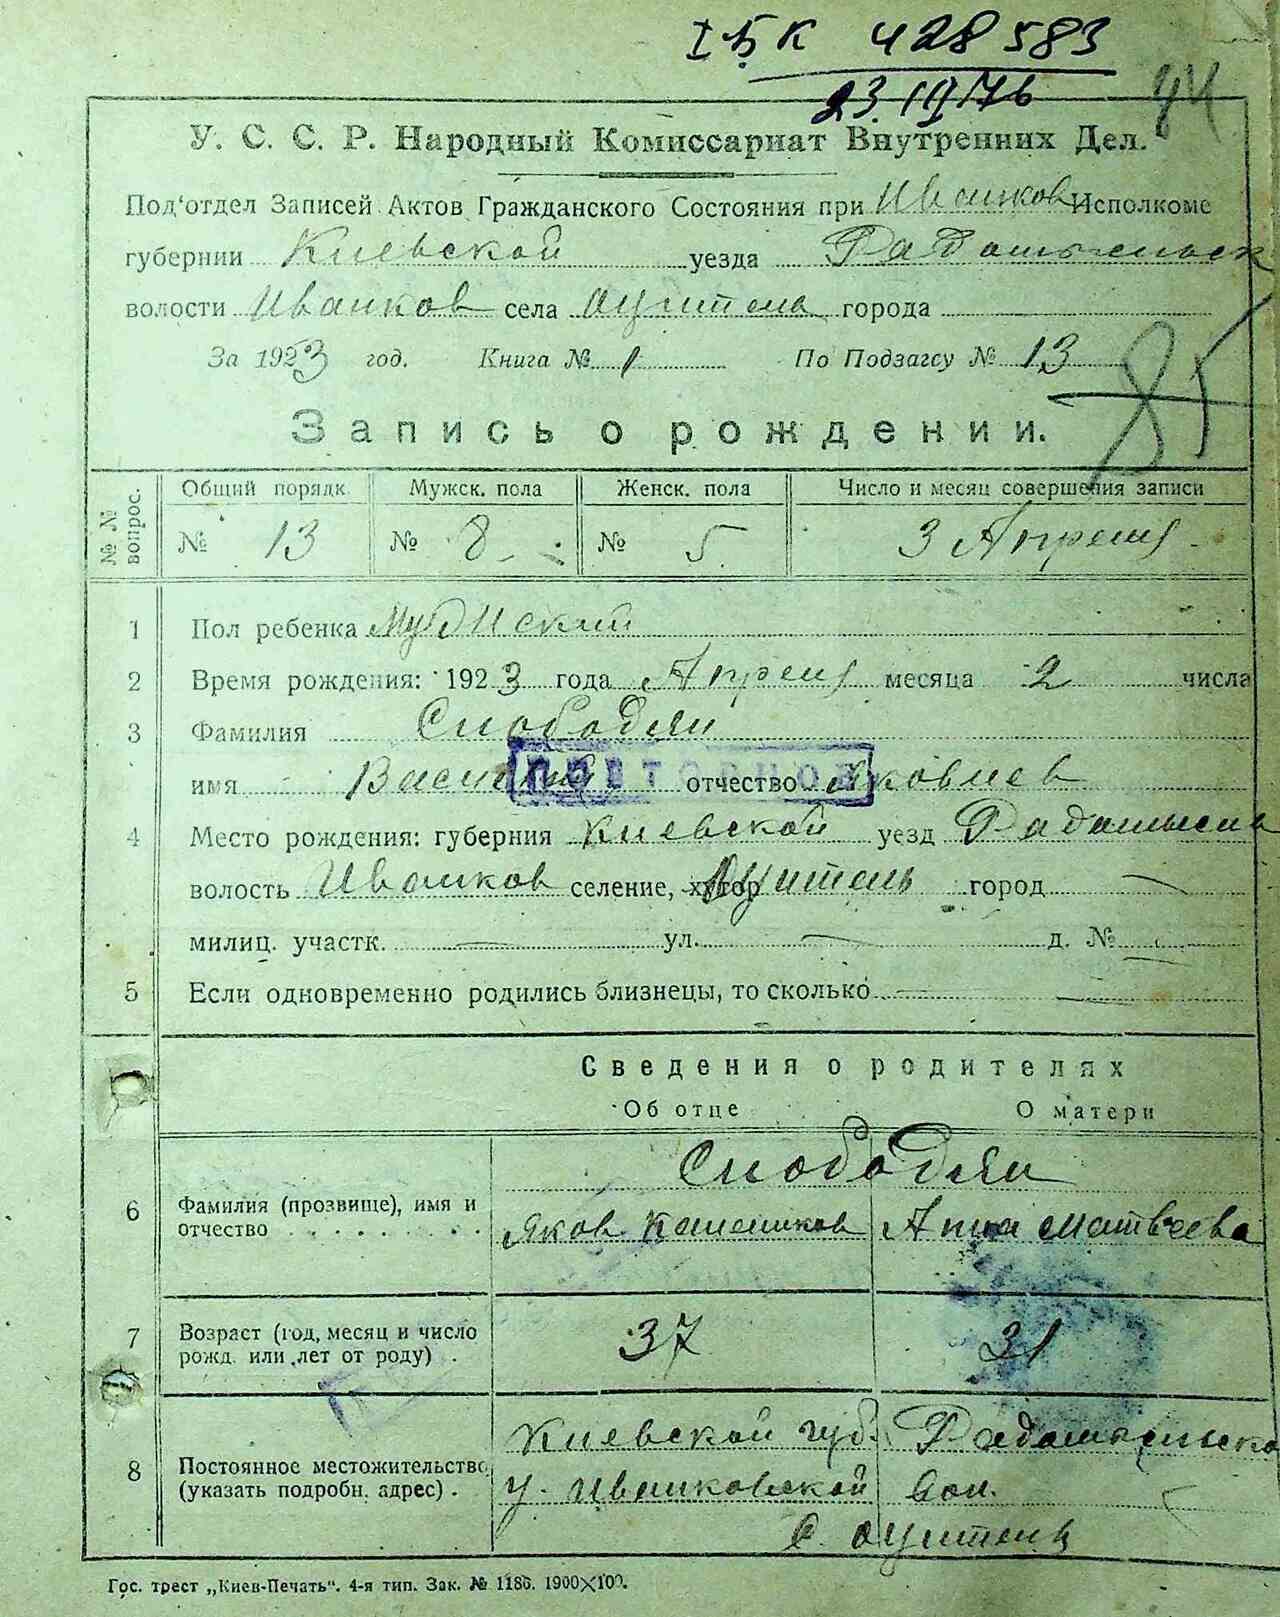 І БК 428583
23.III 76
84
У. С. С. Р. Народный Комиссариат Внутренних Дел.
Под‘отдел Записей Актов Гражданского Состояния при Иванков Исполкоме
губернии Киевской уезда Радомысльск
волости Иванков села города
За 1923 год. Книга № 1 По Подзагсу № 13
85
Запись о рождении.
№ № вопрос.
Общий порядк. Мужск. пола Женск. пола Число и месяц совершения записи
№ 13 № 8 № 5 3 Апреля
1 Пол ребенка Мужиский
2 Время рождения: 1923 года Апреля месяца 2 числа
3 Фамилия Слободян
имя Василий отчество Яковлев
ПОВТОРНОЕ
4 Место рождения: губерния Киевской уезд Радомысль
волость Иванков селение, хутор город —
милиц. участк. — ул. — д. № —
5 Если одновременно родились близнецы, то сколько —
Сведения о родителях
Об отце О матери
Слободян
6 Фамилия (прозвище), имя и Яков Анна Матвеева
отчество . . . . . .
7 Возраст (год, месяц и число 37 31
рожд. или лет от роду) .
Киевской губ. Радомысльско
8 Постоянное местожительство у. Иванковской вол.
(указать подробн. адрес) .
с.
Гос. трест „Киев-Печать“. 4-я тип. Зак. № 1186. 1900×100.